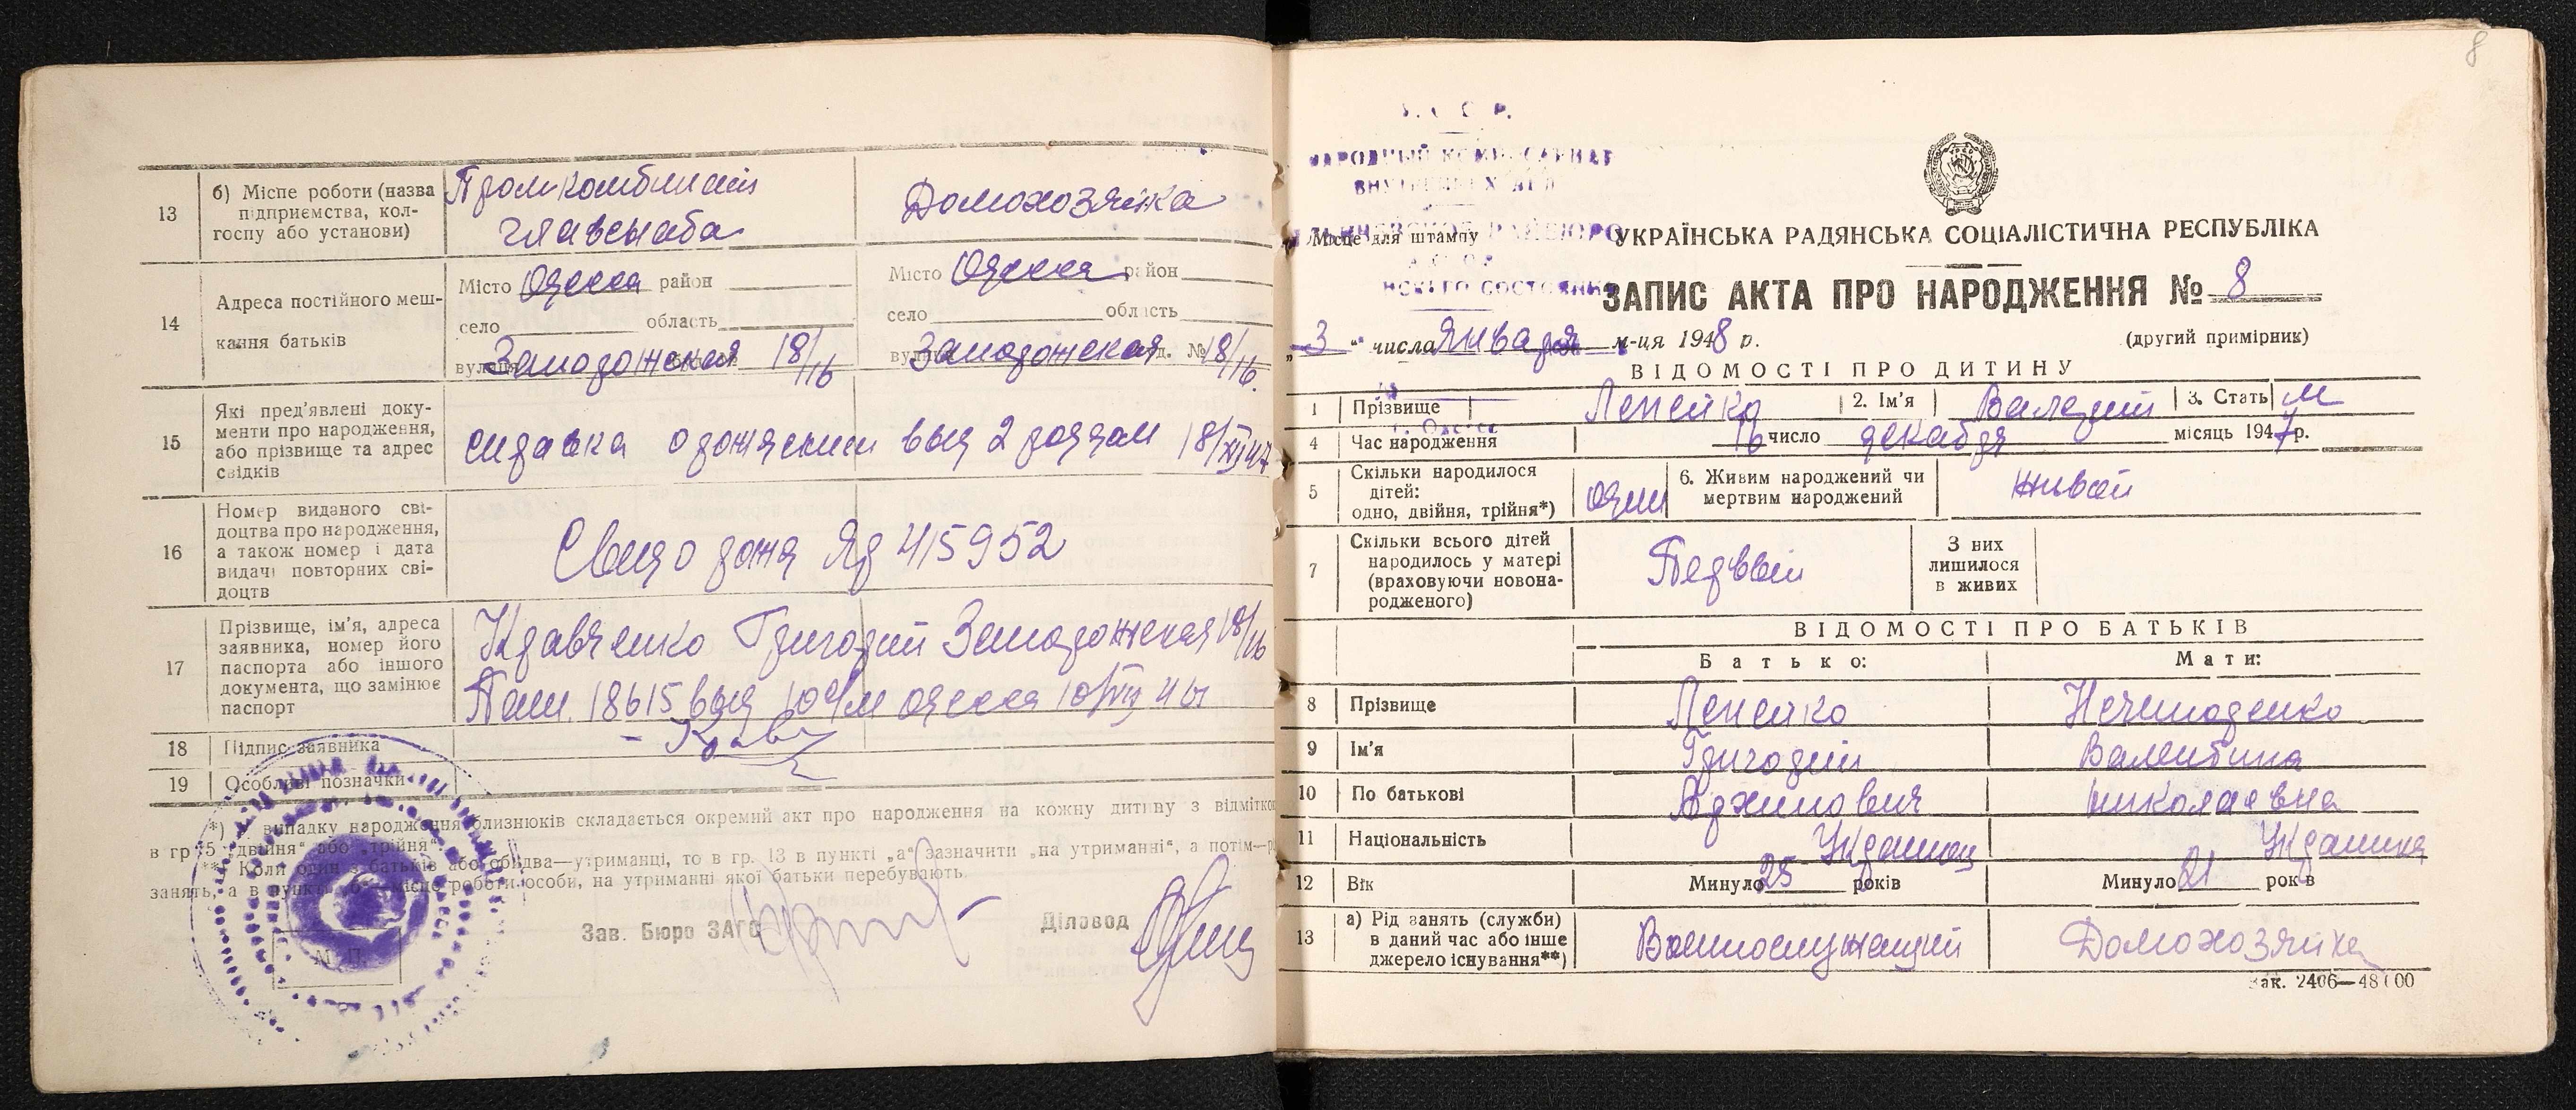 13
б) Місце роботи (назва
підприємства, кол-
госпу або установи)
Промкомбинат
Главснаба
Домохозяйка
14
Адреса постійного меш-
кання батьків
Місто Одесса район
село область
вулиця Запорожская 18/16
Місто Одесса район
село область
вулиця Запорожская буд. № 18/16.
15
Які пред'явлені доку-
менти про народження,
або прізвище та адрес
свідків
справка о рождении выд 2 роддом 18/XII 47
16
Номер виданого сві-
доцтва про народження,
а також номер і дата
видачі повторних сві-
доцтв
Свид о рожд 415952
17
Прізвище, ім'я, адреса
заявника, номер його
паспорта або іншого
документа, що замінює
паспорт
Кравченко Григорий Запорожская 18/16
Пасп. 18615 выд 10 о/м Одесса
18
Підпис заявника
19
Особливі позначки
*) У випадку народження близнюків складається окремий акт про народження на кожну дитину з відміткою
в гр. 5 „двійня“ або „трійня“.
** Коли один з батьків або обидва—утриманці, то в гр. 13 в пункті „а“ зазначити „на утриманні“, а потім—р
занять, а в пункті „б“—місце роботи особи, на утриманні якої батьки перебувають.
Зав. Бюро ЗАГС
Діловод
М. П.
8
НАРОДНЫЙ КОМИССАРИАТ
ВНУТРЕННИХ ДЕЛ
РАЙБЮРО
Місце для штампу
г. Одесса
УКРАЇНСЬКА РАДЯНСЬКА СОЦІАЛІСТИЧНА РЕСПУБЛІКА
ЗАПИС АКТА ПРО НАРОДЖЕННЯ № 8
„3“ числа Января м-ця 1948 р.
(другий примірник)
ВІДОМОСТІ ПРО ДИТИНУ
1 Прізвище Лепейко 2. Ім'я Валерий 3. Стать М
4 Час народження 16 число декабря місяць 1947 р.
5
Скільки народилося
дітей:
одно, двійня, трійня*)
один
6. Живим народжений чи
мертвим народжений
живой
7
Скільки всього дітей
народилось у матері
(враховуючи новона-
родженого)
Первый
З них
лишилося
в живих
ВІДОМОСТІ ПРО БАТЬКІВ
Батько: Мати:
8 Прізвище Лепейко Нечипоренко
9 Ім'я Григорий Валентина
10 По батькові Архипович Николаевна
11 Національність Украинец Украинка
12 Вік Минуло 25 років Минуло 21 років
13
а) Рід занять (служби)
в даний час або інше
джерело існування**)
Военнослужащий
Домохозяйка
Зак. 2406—48000